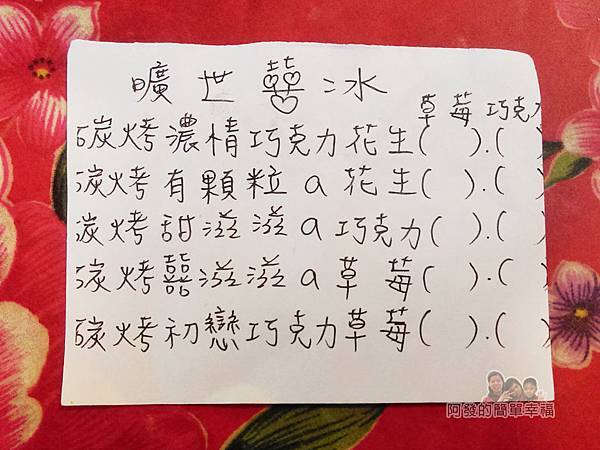 曠世囍冰
草莓 巧克力
碳烤濃情巧克力花生( ).( )
碳烤有顆粒a花生( ).( )
炭烤甜滋滋a巧克力( ).( )
碳烤囍滋滋a草莓( ).( )
碳烤初戀巧克力草莓( ).( )
阿發的簡單幸福